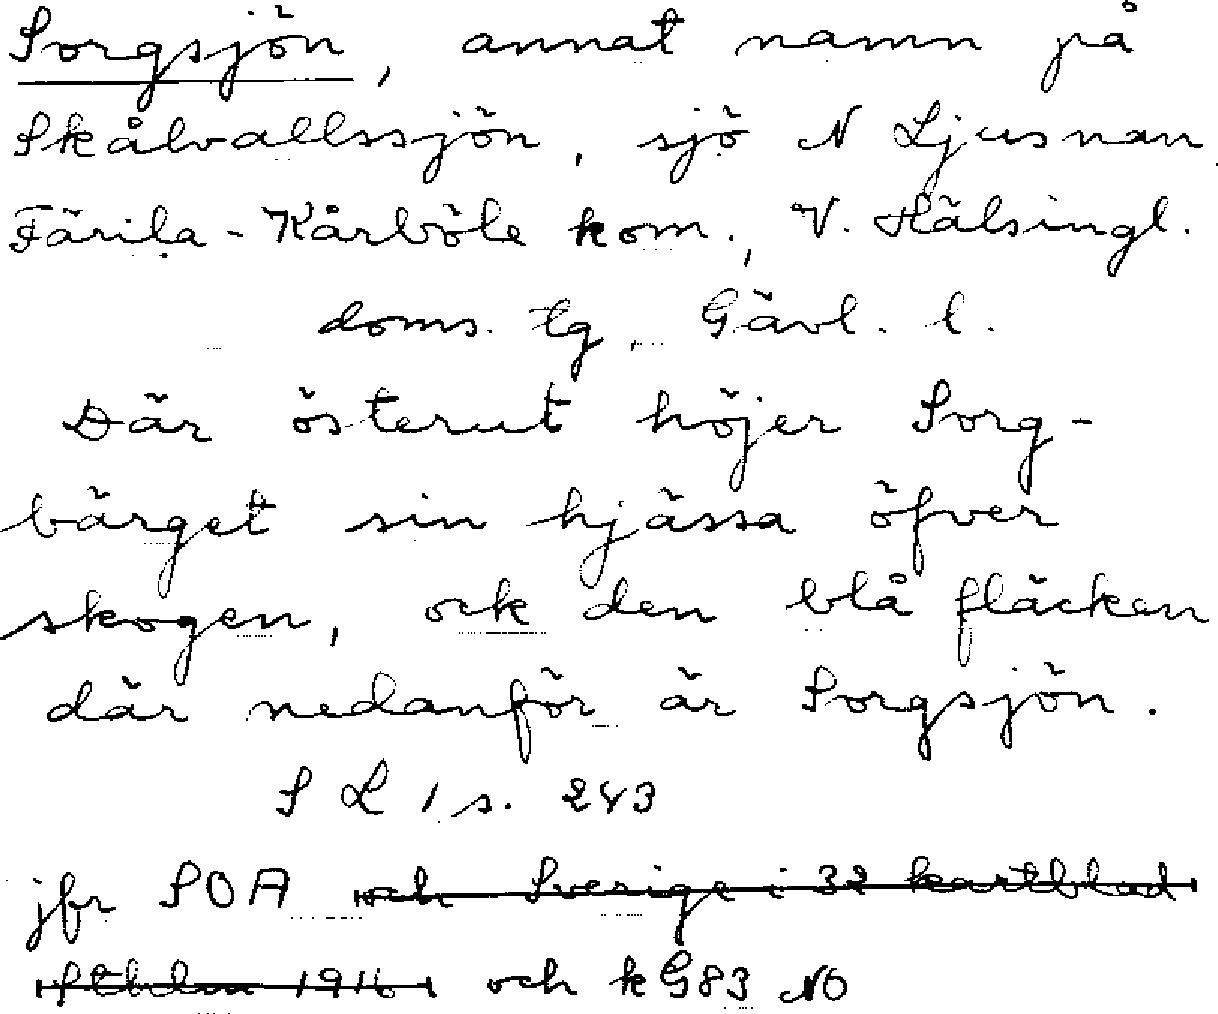 Sorgsjön, annat namn på
Skålvallssjön, sjö N Ljusnan
Färila-Kårböle kom., V. Hälsingl.
doms. tg, Gävl. l.
Där österut höjer Sorg-
bärget sin hjässa öfver
skogen, ock den blå fläcken
där nedanför är Sorgsjön.
SL 1 s. 243
jfr SOA och Sverige i 32 kartblad
Sthlm 1916 och kG83 NO